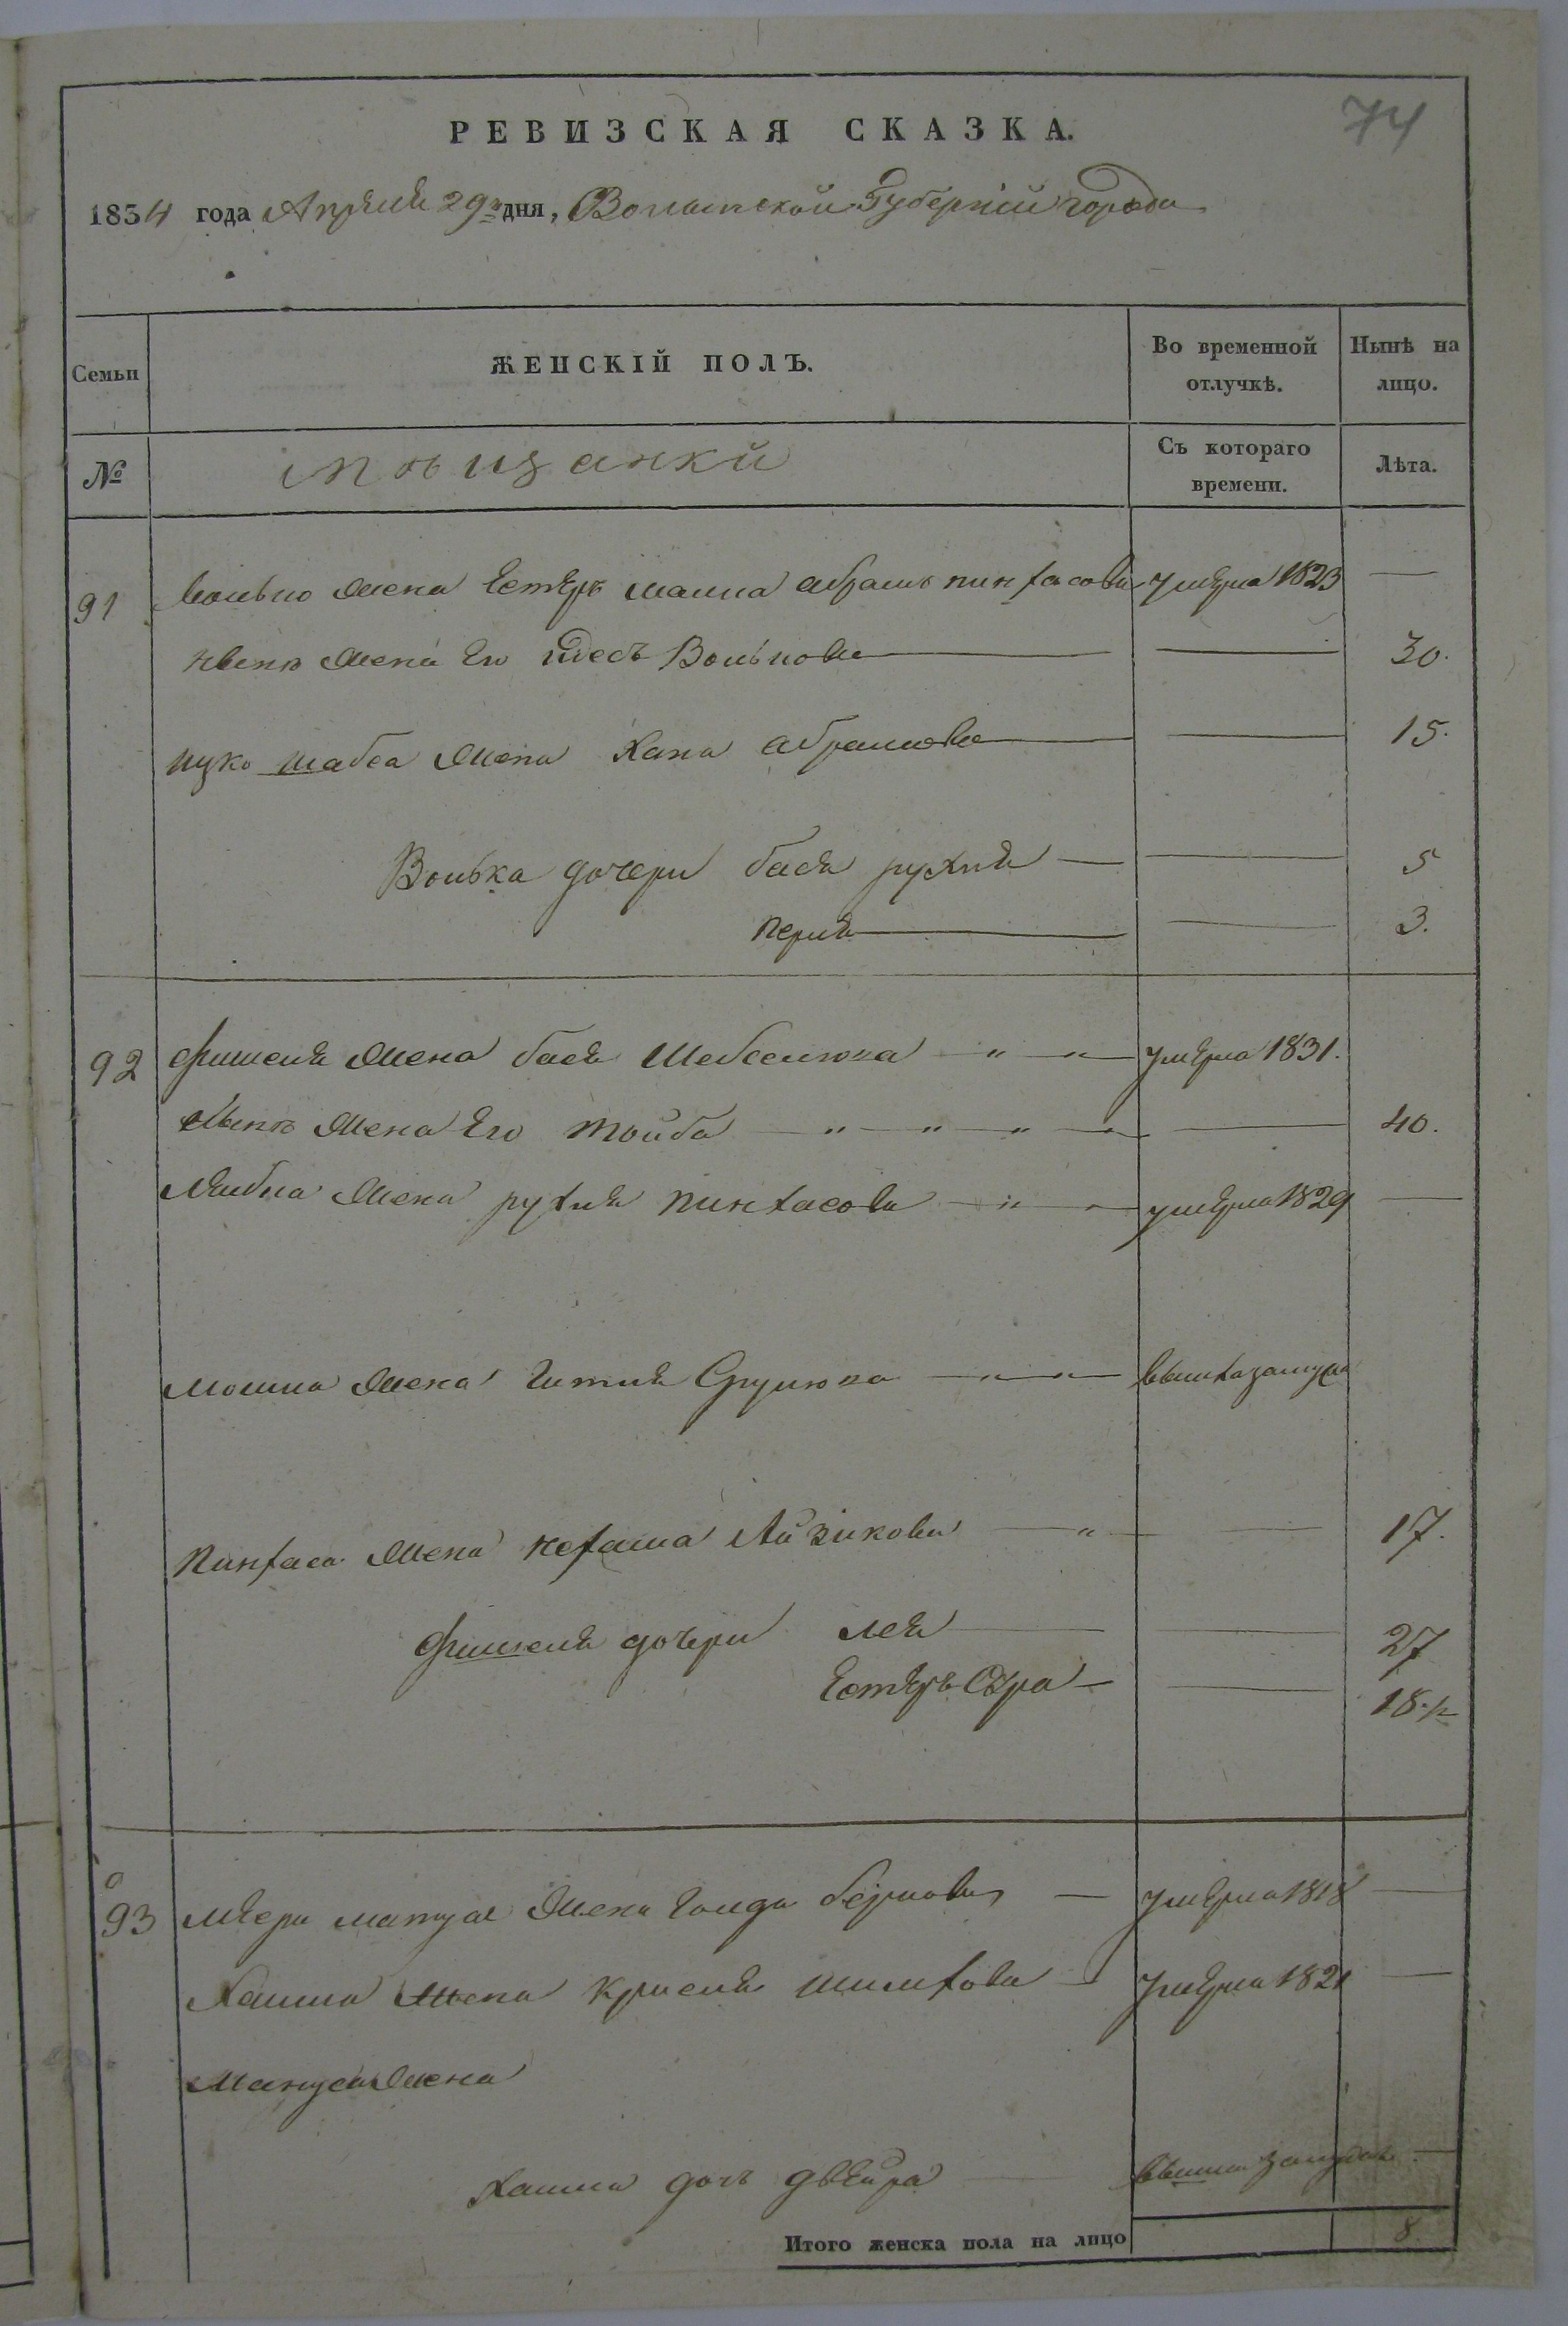 74
РЕВИЗСКАЯ СКАЗКА.
1834 года Апреля 29го дня, Волынской Губерніи города
Семьи
ЖЕНСКІЙ ПОЛЪ.
Во временной отлучкѣ.
Нынѣ на лицо.
№
мѣщанки
Съ котораго времени.
Лѣта.
91 Волько жена Естеръ малка абрамъ пинхасова умерла 1823 —
жена Его Волькова — — 30.
ицко шабса жена Хана абрамова — — 15.
Волька дочери бася рухля — — 5
перля — — 3.
92 Фишеля жена бася Шебселюва умерла 1831.
жена Его тойба — 40.
Лейбы жена рухля пинхасова умерла 1829 —
мошка жена гитля Срулюва вышла замужъ
пинхаса жена нехама Айзикова — 17.
Фишеля дочери лея — — 27
Естеръ Сура — — 18.½
93 жена голда беркова — умерла 1818 —
Хаима жена крисля умерла 1821 —
Мануся жена
Хаима дочь двейра вышла замужъ —
Итого женска пола на лицо 8.